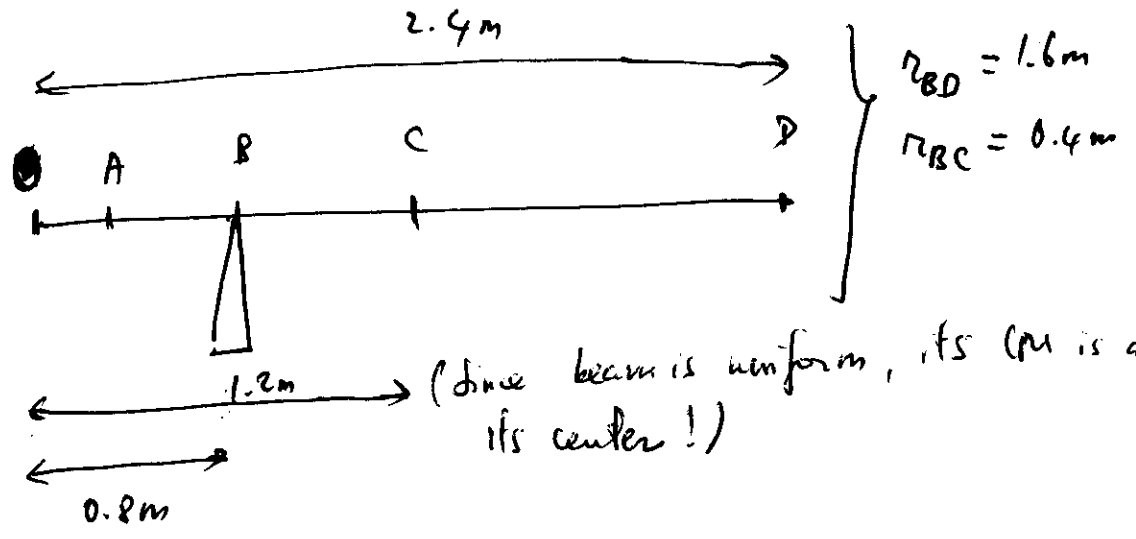 2.4m
r_BD = 1.6m
r_BC = 0.4m
A B C D
1.2m
(Since beam is uniform, its CM is a
its center!)
0.8m